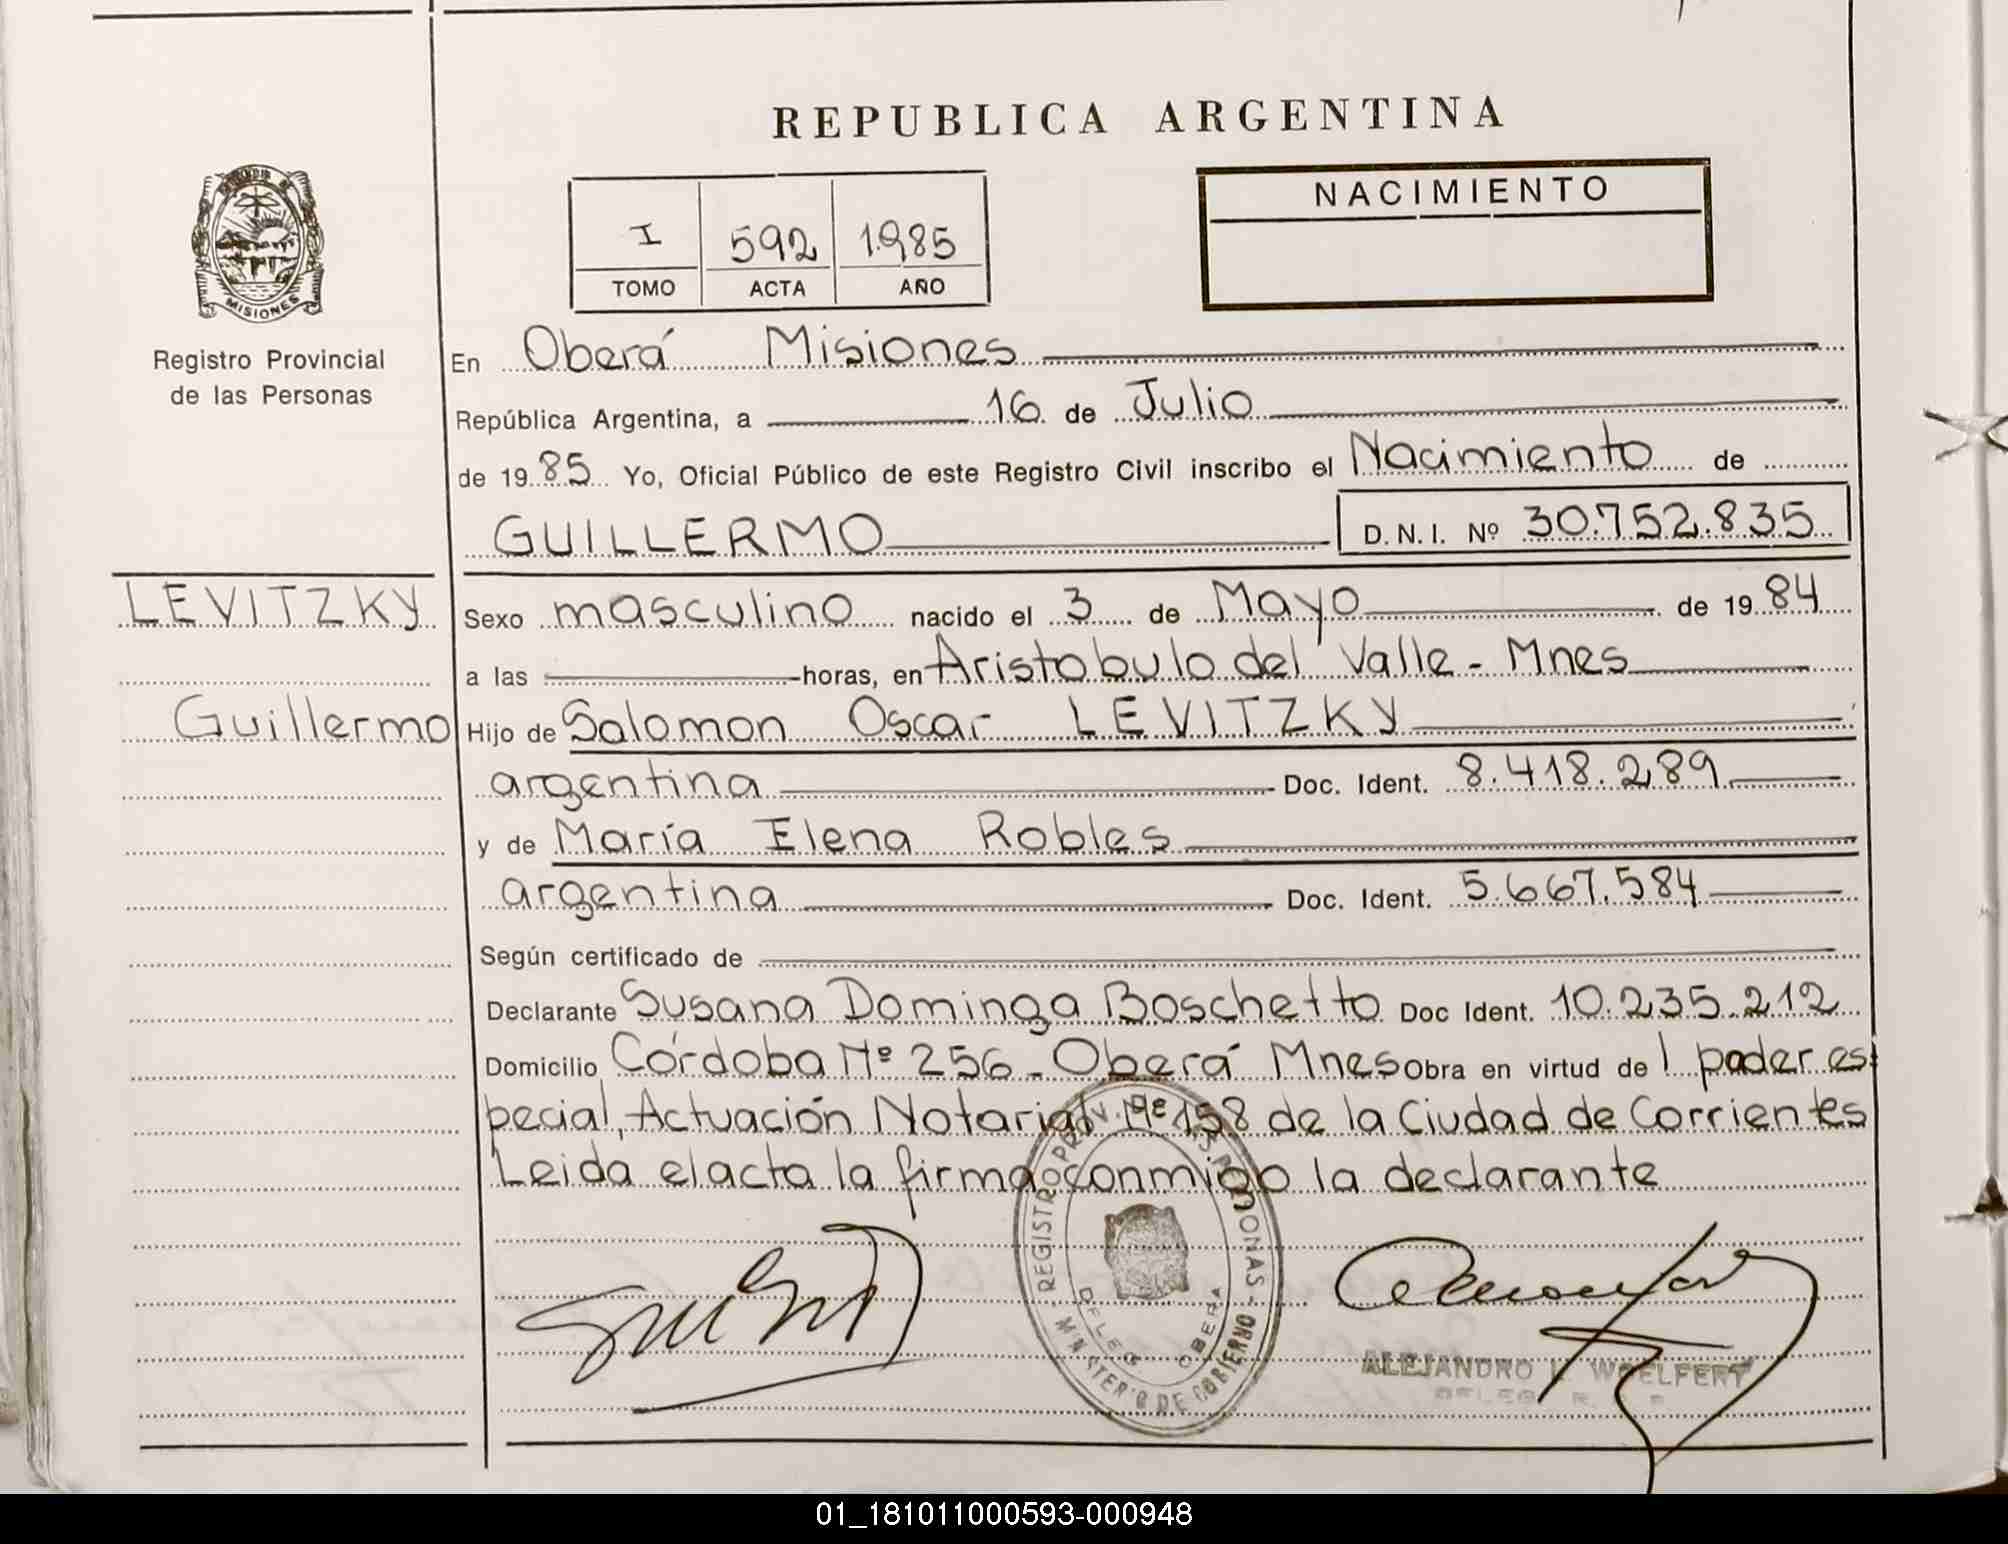 REPUBLICA ARGENTINA
NACIMIENTO
I 592 1985
TOMO ACTA AÑO
MISIONES
Registro Provincial
de las Personas
En Oberá Misiones
República Argentina, a 16 de Julio
de 19 85 Yo, Oficial Público de este Registro Civil inscribo el Nacimiento de
GUILLERMO D.N.I. Nº 30.752.835
LEVITZKY
Guillermo
Sexo masculino nacido el 3 de Mayo de 19 84
a las horas, en Aristobulo del Valle - Mnes
Hijo de Salomon Oscar LEVITZKY
argentina Doc. Ident. 8.418.289
y de María Elena Robles
argentina Doc. Ident. 5.667.584
Según certificado de
Declarante Susana Dominga Boschetto Doc Ident. 10.235.212
Domicilio Córdoba Nº 256 - Oberá Mnes Obra en virtud de 1 poder es
pecial, Actuación Notarial Nº 158 de la Ciudad de Corrientes
Leida el acta la firma conmigo la declarante
REGISTRO PROV. PERSONAS
DELEG OBERA
MINISTERIO DE GOBIERNO
ALEJANDRO WOELFERT
01_181011000593-000948